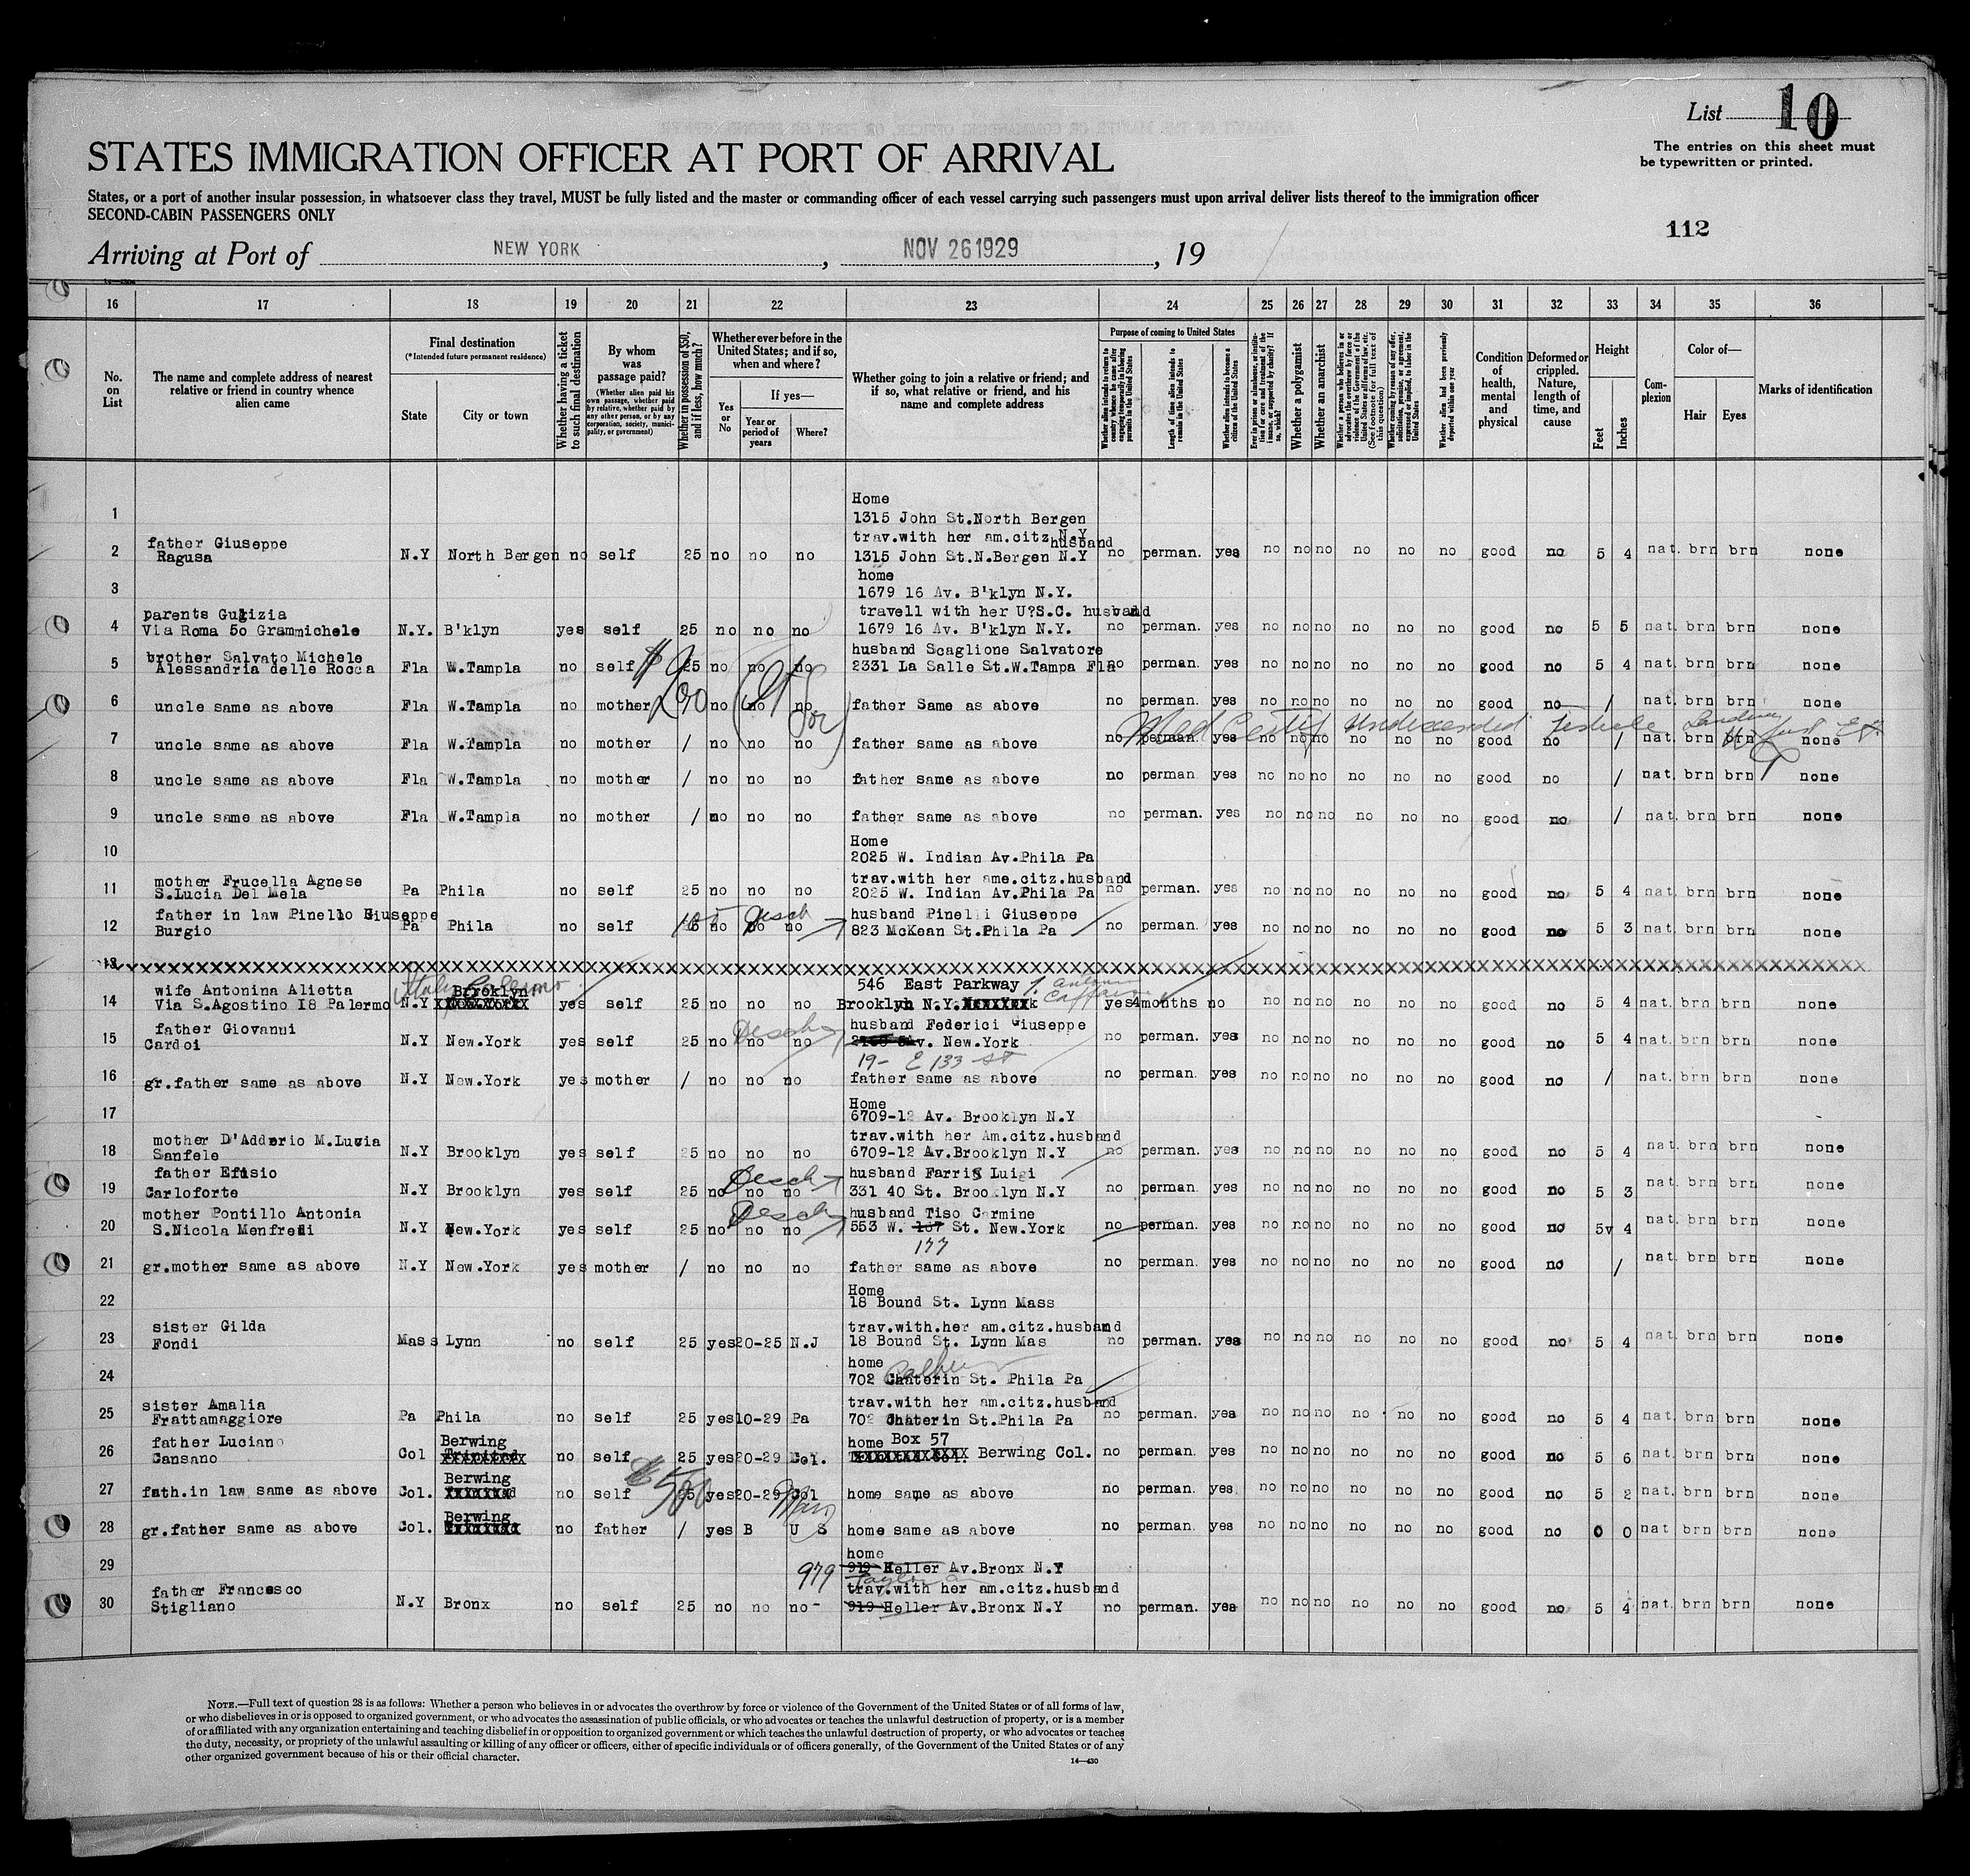 List 10
The entries on this sheet must
be typewritten or printed.
STATES IMMIGRATION OFFICER AT PORT OF ARRIVAL
States, or a port of another insular possession, in whatsoever class they travel, MUST be fully listed and the master or commanding officer of each vessel carrying such passengers must upon arrival deliver lists thereof to the immigration officer
SECOND-CABIN PASSENGERS ONLY
112
Arriving at Port of NEW YORK, NOV 26 1929, 19
16 17 18 19 20 21 22 23 24 25 26 27 28 29 30 31 32 33 34 35 36
No. on List
The name and complete address of nearest relative or friend in country whence alien came
Final destination
(*Intended future permanent residence)
State
City or town
Whether having a ticket to such final destination
By whom was passage paid?
(Whether alien paid his own passage, whether paid by relative, whether paid by any other person, or by any corporation, society, municipality, or government)
Whether in possession of $50, and if less, how much?
Whether ever before in the United States; and if so, when and where?
Yes or No
If yes—
Year or period of years
Where?
Whether going to join a relative or friend; and if so, what relative or friend, and his name and complete address
Purpose of coming to United States
Length of time alien intends to remain in the United States
Whether alien intends to become a citizen of the United States
Whether a polygamist
Whether an anarchist
Condition of health, mental and physical
Deformed or crippled. Nature, length of time, and cause
Height
Feet
Inches
Complexion
Color of—
Hair
Eyes
Marks of identification
1 Home
1315 John St.North Bergen
N.Y
2 father Giuseppe trav.with her am.citz husband
Ragusa N.Y North Bergen no self 25 no no no 1315 John St.N.Bergen N.Y no perman. yes no no no no no no good no 5 4 nat. brn brn none
3 home
1679 16 Av. B'klyn N.Y.
4 parents Gulizia travell with her U?S.C. husband
Via Roma 50 Grammichele N.Y. B'klyn yes self 25 no no no 1679 16 Av. B'klyn N.Y. no perman. yes no no no no no no good no 5 5 nat. brn brn none
5 brother Salvato Michele husband Scaglione Salvatore
Alessandria delle Rocca Fla W.Tampla no self 25 no no no 2331 La Salle St.W.Tampa Fla no perman. yes no no no no no no good no 5 4 nat. brn brn none
6 uncle same as above Fla W.Tampla no mother no no no father Same as above no perman. yes no no no no no no good no / nat. brn brn none
Med Certif Undescended Testicle
7 uncle same as above Fla W.Tampla no mother / no no no father same as above no perman. yes no no no no no no good no / nat. brn brn none
8 uncle same as above Fla W.Tampla no mother / no no no father same as above no perman. yes no no no no no no good no / nat. brn brn none
9 uncle same as above Fla W.Tampla no mother / no no no father same as above no perman. yes no no no no no no good no / nat. brn brn none
10 Home
2025 W. Indian Av.Phila Pa
11 mother Frucella Agnese trav.with her ame.citz.husband
S.Lucia Del Mela Pa Phila no self 25 no no no 2025 W. Indian Av.Phila Pa no perman. yes no no no no no no good no 5 4 nat. brn brn none
12 father in law Pinello Giuseppe husband Pinelli Giuseppe
Burgio Pa Phila no self no no no 823 McKean St.Phila Pa no perman. yes no no no no no no good no 5 3 nat. brn brn none
13
14 wife Antonina Alietta Italy Palermo Brooklyn 546 East Parkway
Via S.Agostino I8 Palermo N.Y yes self 25 no no no Brooklyn N.Y. yes 4 months no no no no no no no good no 5 4 nat. brn brn none
15 father Giovanni husband Federici Giuseppe
Cardoi N.Y New.York yes self 25 no no no Av. New.York no perman. yes no no no no no no good no 5 4 nat. brn brn none
19- E 133 St
16 gr.father same as above N.Y New.York yes mother / no no no father same as above no perman. yes no no no no no no good no / nat. brn brn none
17 Home
6709-12 Av. Brooklyn N.Y
18 mother D'Adderio M.Lucia trav.with her Am.citz.husband
Sanfele N.Y Brooklyn yes self 25 no no no 6709-12 Av.Brooklyn N.Y no perman. yes no no no no no no good no 5 4 nat. brn brn none
19 father Efisio husband Farris Luigi
Carloforte N.Y Brooklyn yes self 25 no no no 331 40 St. Brooklyn N.Y no perman. yes no no no no no no good no 5 3 nat. brn brn none
20 mother Pontillo Antonia husband Tiso Carmine
S.Nicola Menfredi N.Y New.York yes self 25 no no no 553 W. 167 St. New.York no perman. yes no no no no no no good no 5v 4 nat. brn brn none
177
21 gr.mother same as above N.Y New.York yes mother / no no no father same as above no perman. yes no no no no no no good no / nat. brn brn none
22 Home
18 Bound St. Lynn Mass
23 sister Gilda trav.with.her am.citz.husband
Fondi Mass Lynn no self 25 yes 20-25 N.J 18 Bound St. Lynn Mas no perman. yes no no no no no no good no 5 4 nat. brn brn none
24 home
702 Chaterin St. Phila Pa
25 sister Amalia trav.with her am.citz.husband
Frattamaggiore Pa Phila no self 25 yes 10-29 Pa 702 Chaterin St.Phila Pa no perman. yes no no no no no no good no 5 4 nat. brn brn none
26 father Luciano Berwing home Box 57
Cansano Col no self 25 yes 20-29 Col. Berwing Col. no perman. yes no no no no no no good no 5 6 nat. brn brn none
27 fath.in law same as above Col. Berwing no self 25 yes 20-29 Col home same as above no perman. yes no no no no no no good no 5 2 nat. brn brn none
28 gr.father same as above Col. Berwing no father / yes B U S home same as above no perman. yes no no no no no no good no 0 0 nat brn brn none
29 home
979 919 Heller Av.Bronx N.Y
30 father Francesco trav.with her am.citz.husband
Stigliano N.Y Bronx no self 25 no no no 919 Heller Av.Bronx N.Y no perman. yes no no no no no no good no 5 4 nat. brn brn none
NOTE.—Full text of question 28 is as follows: Whether a person who believes in or advocates the overthrow by force or violence of the Government of the United States or of all forms of law,
or who disbelieves in or is opposed to organized government, or who advocates the assassination of public officials, or who advocates or teaches the unlawful destruction of property, or is a member
of or affiliated with any organization entertaining and teaching disbelief in or opposition to organized government or which teaches the unlawful destruction of property, or who advocates or teaches
the duty, necessity, or propriety of the unlawful assaulting or killing of any officer or officers, either of specific individuals or of officers generally, of the Government of the United States or of any
other organized government because of his or their official character.
14—430